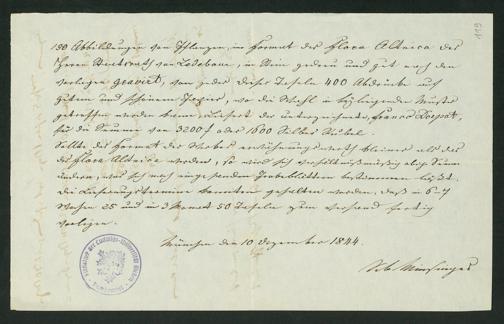 119
150 Abbildungen von Pflanzen, im Format der Flora Altaica des
Herrn Staatsrath von Ledebour, in Stein gedruckt und gut nach den
Vorlagen gravirt, von jeder dieser Tafeln 400 Abdrücke auf
gutem und schönem Papier, wo die Wahl in beyliegenden Muster
getroffen werden kann, liefert der unterzeichnete, franco
für die Summe von 3200 f oder 1800 Silber Rubel.
Sollte das Format des Werkes kleiner als das
der Flora Altaica werden, so wird sich verhältnißmäßig obige Summe
ändern, was sich nach eingesandten Probeblättern bestimmen läßt.
die Lieferungstermine könnten gehalten werden, daß in 6-7
Wochen 25 und in 3 Monat 50 Tafeln zum versand fertig
vorliegen.
München den 10 Dezember 1844.
Seb. Minsinger